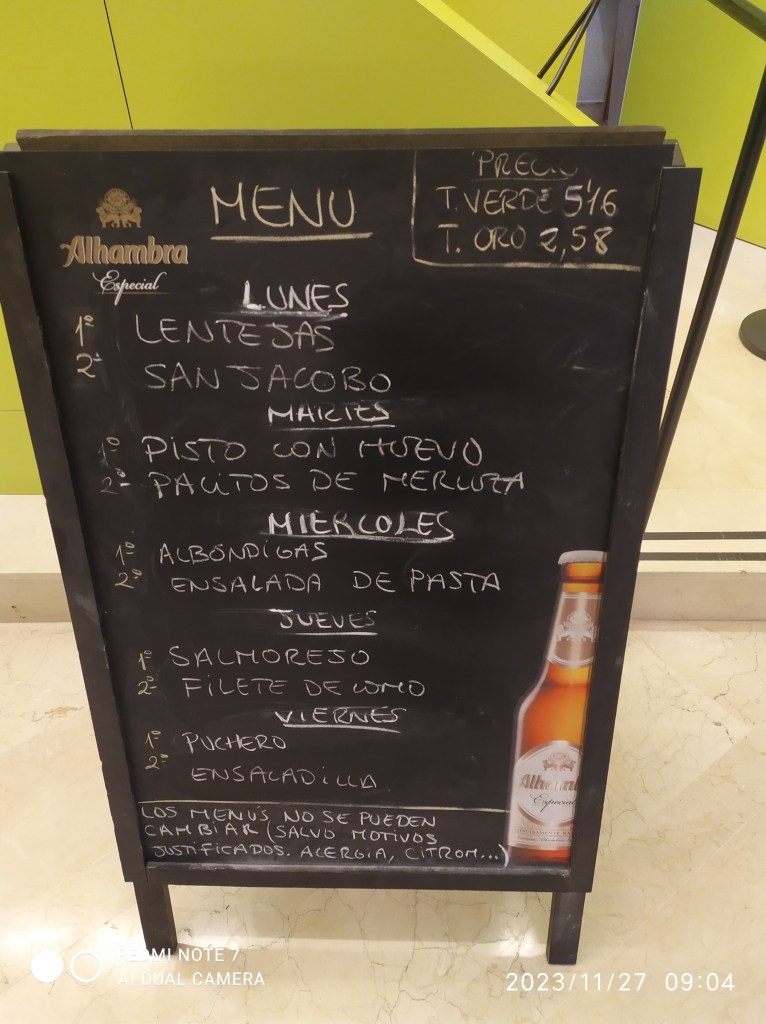 MENU
PRECIO
T. VERDE 5'16
T. ORO 2,58
Alhambra
Especial
LUNES
1º LENTEJAS
2º SAN JACOBO
MARTES
1º PISTO CON HUEVO
2º PALITOS DE MERLUZA
MIERCOLES
1º ALBÓNDIGAS
2º ENSALADA DE PASTA
JUEVES
1º SALMOREJO
2º FILETE DE LOMO
VIERNES
1º PUCHERO
2º ENSALADILLA
Alhambra
Especial
LOS MENU'S NO SE PUEDEN
CAMBIAR (SALVO MOTIVOS
JUSTIFICADOS. ALERGIA, CITROM...)
REDMI NOTE 7
AI DUAL CAMERA
2023/11/27 09:04